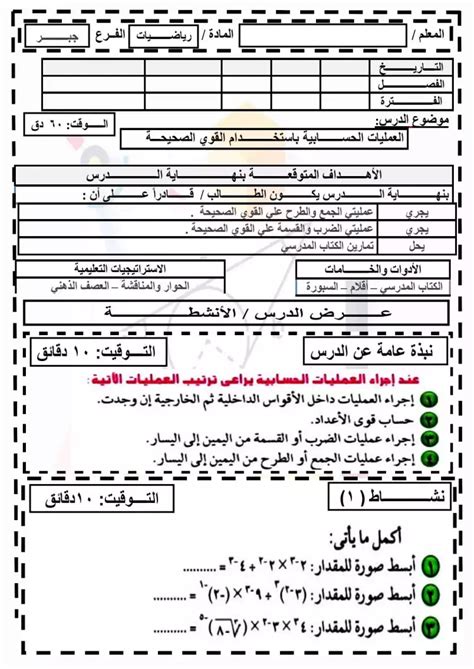 المعلم / المادة / رياضيات الفرع جبر
التاريخ
الفصل
الفترة
موضوع الدرس: الوقت: ٦٠ دق
العمليات الحسابية باستخدام القوي الصحيحة
الأهداف المتوقعة بنهاية الدرس
بنهاية الدرس يكون الطالب / قادراً على أن :
يجري عمليتي الجمع والطرح علي القوي الصحيحة .
يجري عمليتي الضرب والقسمة علي القوي الصحيحة .
يحل تمارين الكتاب المدرسي
الأدوات والخامات الاستراتيجيات التعليمية
الكتاب المدرسي – أقلام – السبورة الحوار والمناقشة – العصف الذهني
عرض الدرس / الأنشطة
نبذة عامة عن الدرس التوقيت: ١٠ دقائق
عند إجراء العمليات الحسابية يراعى ترتيب العمليات الآتية:
١ إجراء العمليات داخل الأقواس الداخلية ثم الخارجية إن وجدت.
٢ حساب قوى الأعداد.
٣ إجراء عمليات الضرب أو القسمة من اليمين إلى اليسار.
٤ إجراء عمليات الجمع أو الطرح من اليمين إلى اليسار.
نشاط (١) التوقيت: ١٠دقائق
أكمل ما يأتى:
١ أبسط صورة للمقدار:
٢ أبسط صورة للمقدار:
٣ أبسط صورة للمقدار: